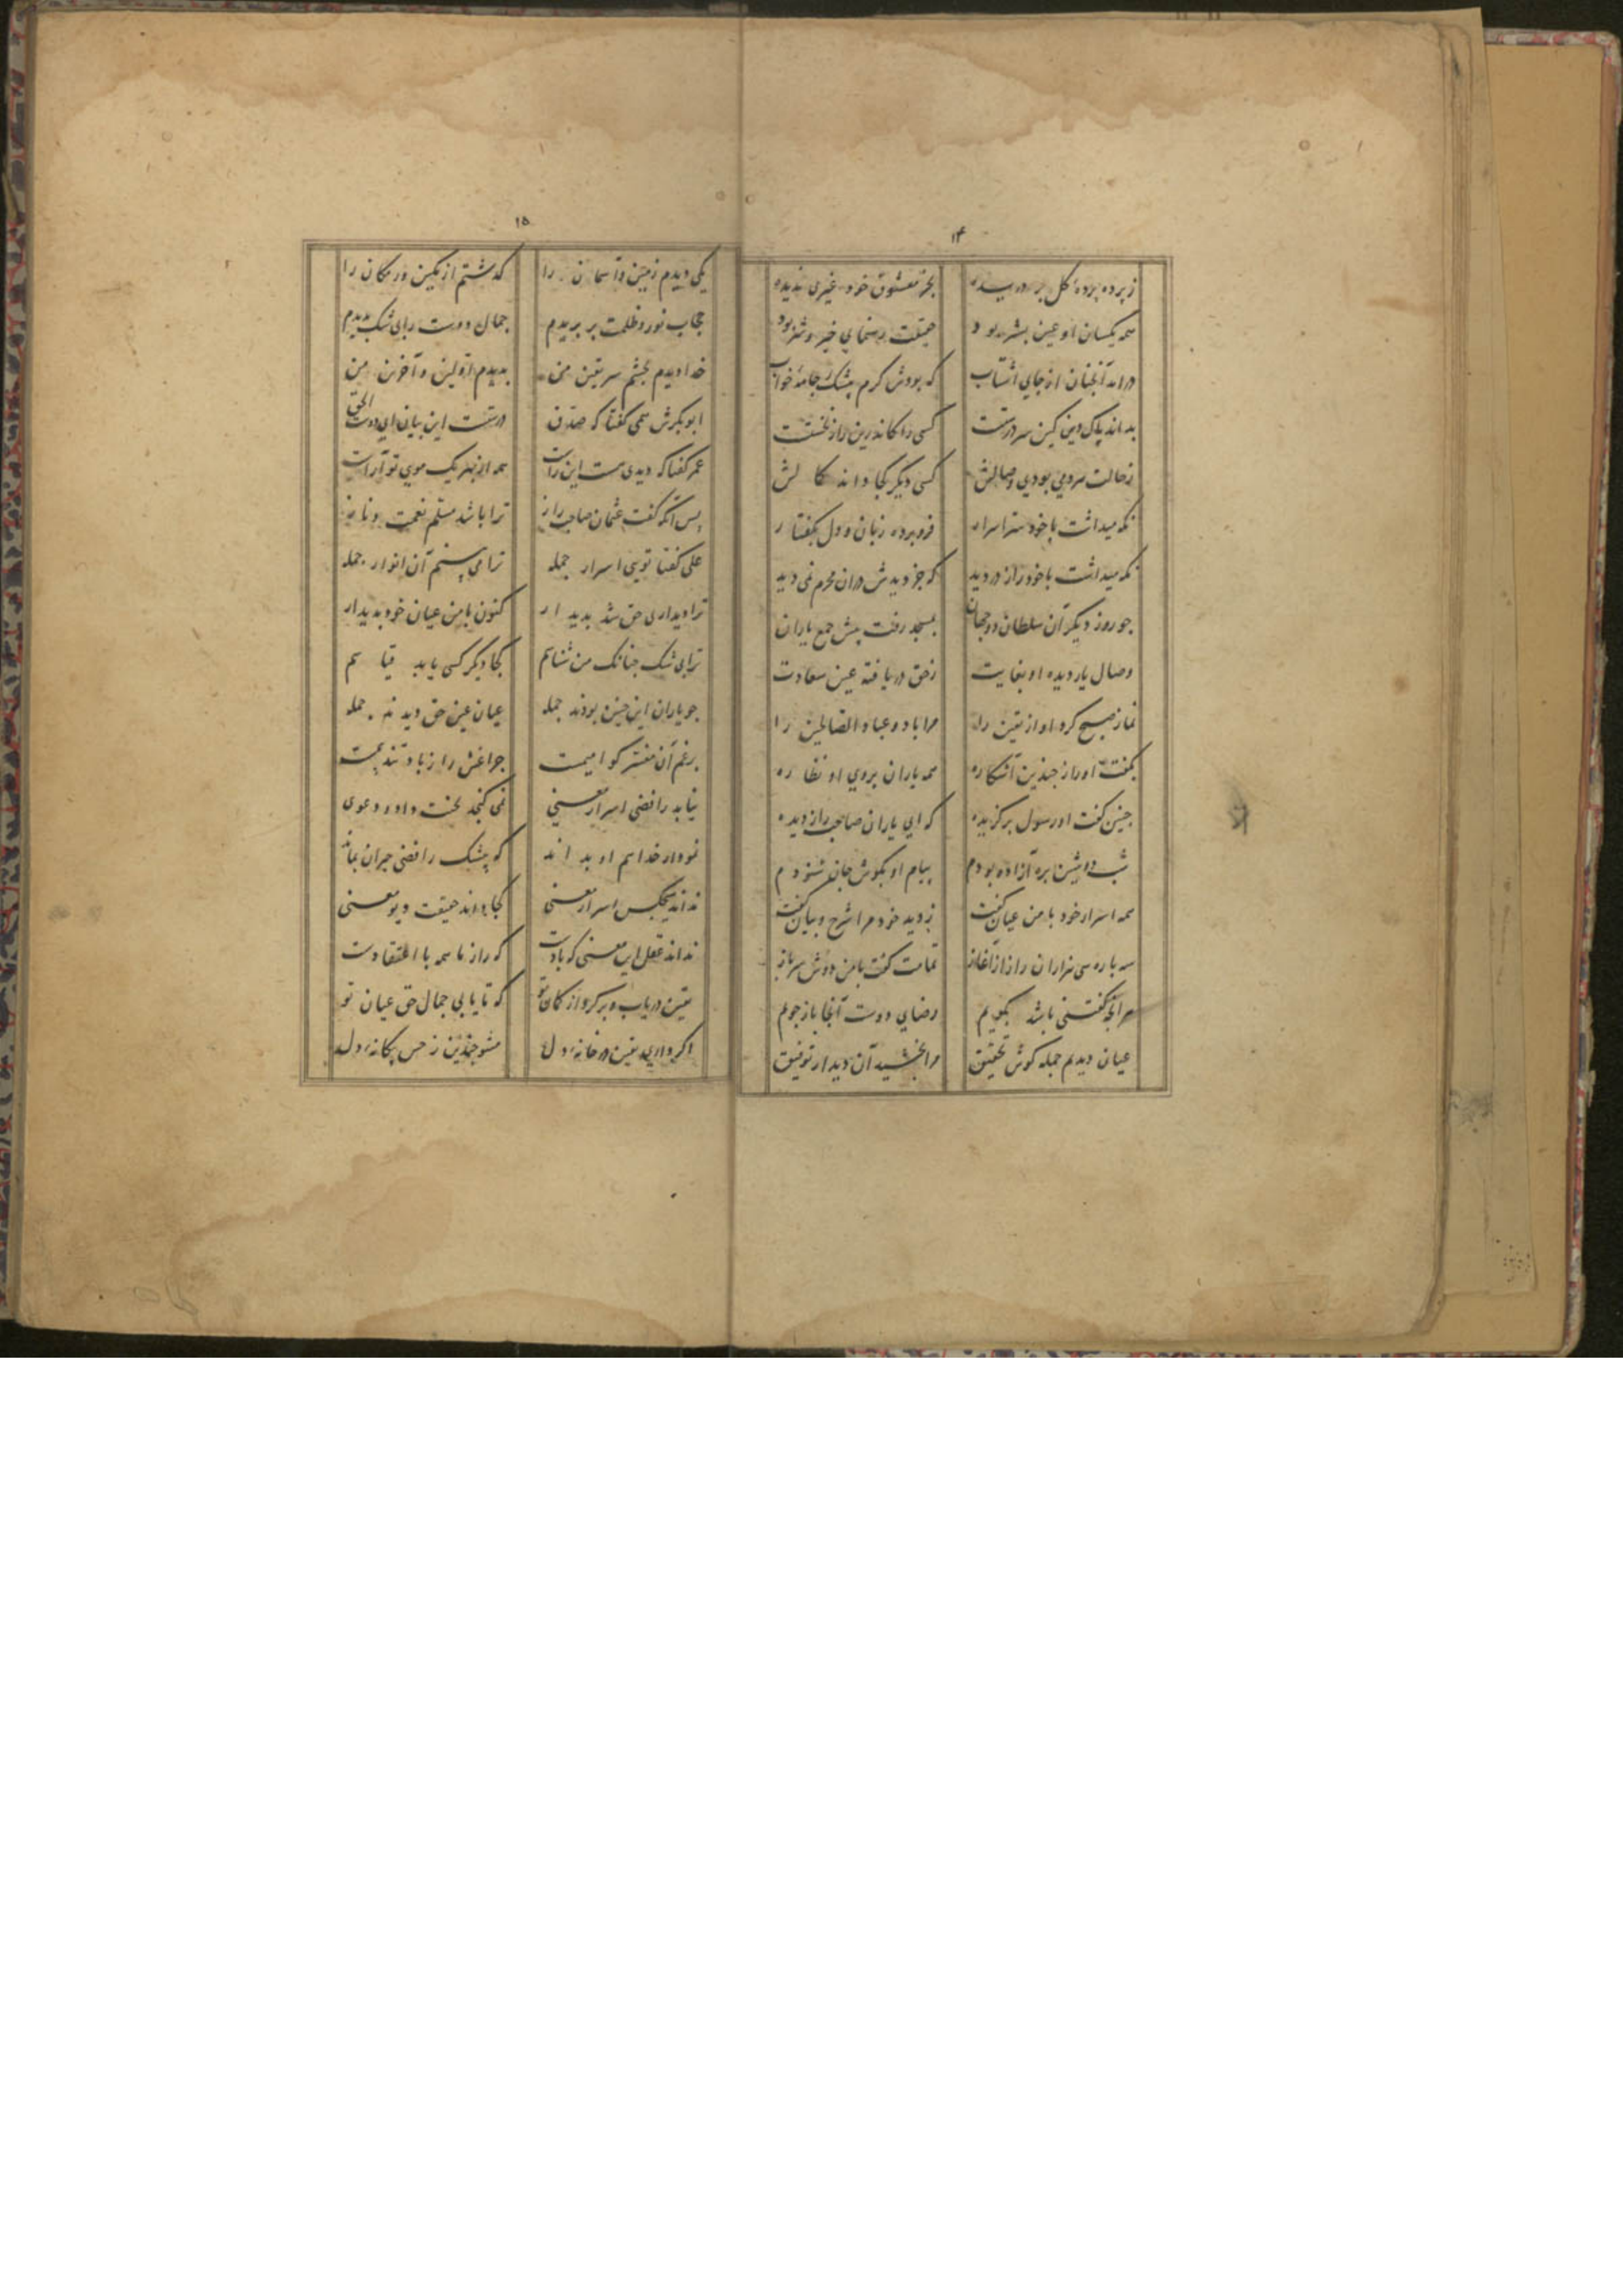 ۱۴
ز پرده پرده کل بر دریده بجز معشوق خود غیری ندیده
همه یکسان او عین بشر بود حقیقت رهنمای خیر و شر بود
درامد آنچنان از جای اشتاب که بودش کرم بیشک جامهٔ خواب
بداند پاک دین کین سر درستست کسی را کاندرین راز نخستست
ز حالت مردمی بودی وصالش کسی دیکر کجا داند کمالش
نکه میداشت با خود سر اسرار فرو برده زبان و دل بکفتار
نکه میداشت با خود راز در دید که جز دیدش در ان محرم نمی دید
جو روز دیکر آن سلطان دو جهان بمسجد رفت پیش جمع یاران
وصال یار دیده او بغایت ز حق دریافته عین سعادت
نماز صبح کرد او از یقین را مر اباد و عباد الصالحین را
بکفت اوراد جندین آشکاره همه یاران بروی او نظاره
جنین کفت او رسول برکزیده که ای یاران صاحب راز دیده
شب دوشین بره آزاده بودم پیام او بکوش جان شنودم
همه اسرار خود با من عیان کفت ز دید خود مرا شرح و بیان کفت
سه باره سی هزاران راز از آغاز تمامت کفت با من دوش سر باز
هر انچه کفتنی باشد بکویم رضای دوست آنجا باز جویم
عیان دیدم جمله کوش تحقیق مرا بخشید آن دیدار توفیق
۱۵
یکی دیدم زمین و آسمان را کذشتم از مکین و ر مکان را
حجاب نور و ظلمت بر بریدم جمال دوست را بی شک بدیدم
خدا دیدم بچشم سر یقین من بدیدم اولین و آخرین من
ابوبکرش همی کفتا که صدق درستست این بیان ای دوست الحق
عمر کفتا که دیدی هست این راست همه از بهر یک موی تو آراست
پس آنکه کفت عثمان صاحب راز ترا باشد مسلم نعمت و ناز
علی کفتا تویی اسرار جمله ترا می بینم آن انوار جمله
ترا دیداری حق شد بدیدار کنون با من عیان خود بدیدار
ترا بی شک جنانک من شناسم کجا دیکر کسی یابد قیاسم
جو یاران این جنین بودند جمله عیان عین حق دیدند جمله
برغم آن مفسر کو امیست جراغش را ز باد تند
نیابد رافضی اسرار معنی نمی کنجد تخت داود دعوی
نمودار خدا هم او بداند که بیشک رافضی حیران بماند
نداند هیجکس اسرار معنی کجا داند حقیقت دیو معنی
نداند عقل این معنی که بادت که راز ما همه با اعتقادت
یقین دریاب و برکرد از کمان تو که تا یابی جمال حق عیان تو
اکر داری یقین در خانهٔ دل مشو جندین ز حس بیکانهٔ دل